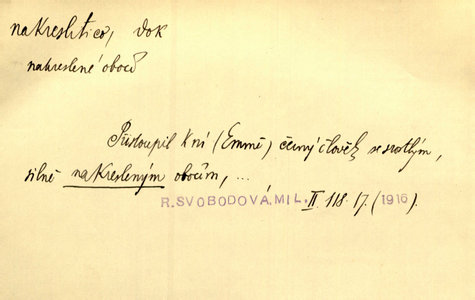 nakresliti co, dok
nakreslené obočí
Přistoupil k ní (Emmě) černý člověk se svatlým,
silně nakresleným obočím, ...
R.SVOBODOVÁ, MIL. II 118. 17. (1916).